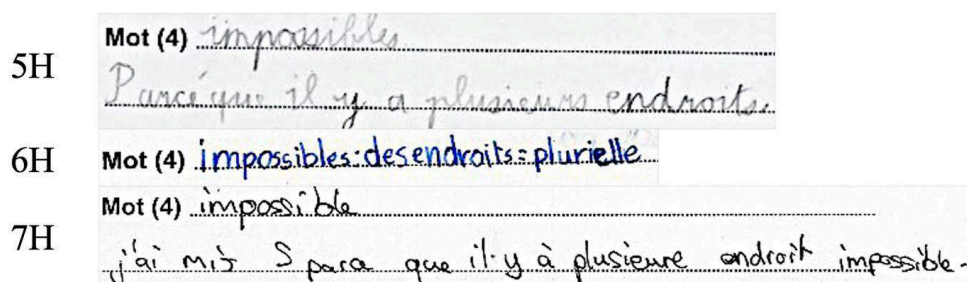 5H
Mot (4) impossibles
Parce que il y a plusieurs endroits.
6H
Mot (4) impossibles : des endroits = plurielle
7H
Mot (4) impossible
j'ai mis S parce que il y à plusieure endroit impossible.